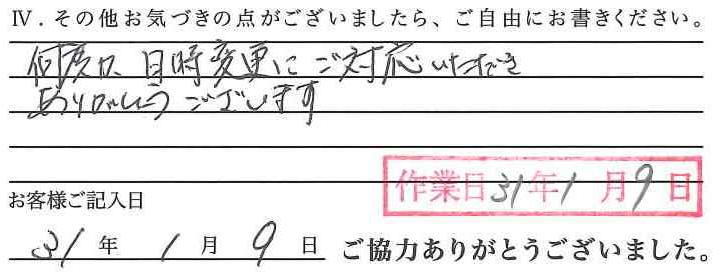 Ⅳ．その他お気づきの点がございましたら、ご自由にお書きください。
何度か、日時変更にご対応いただき
ありがとうございます
作業日31年1月9日
お客様ご記入日
31年1月9日 ご協力ありがとうございました。